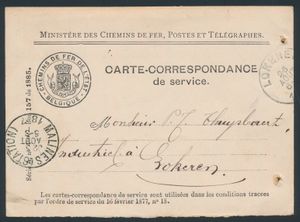 MINISTÈRE DES CHEMINS DE FER, POSTES ET TÉLÉGRAPHES.
CHEMINS DE FER DE L'ÉTAT
BELGIQUE
CARTE-CORRESPONDANCE
de service.
157 de 1885.
LOKEREN
MALINES (STATION)
Monsieur
Industriel à
Lokeren
Les cartes-correspondance de service sont utilisées dans les conditions tracées
par l'ordre de service du 16 février 1877, nº 15.